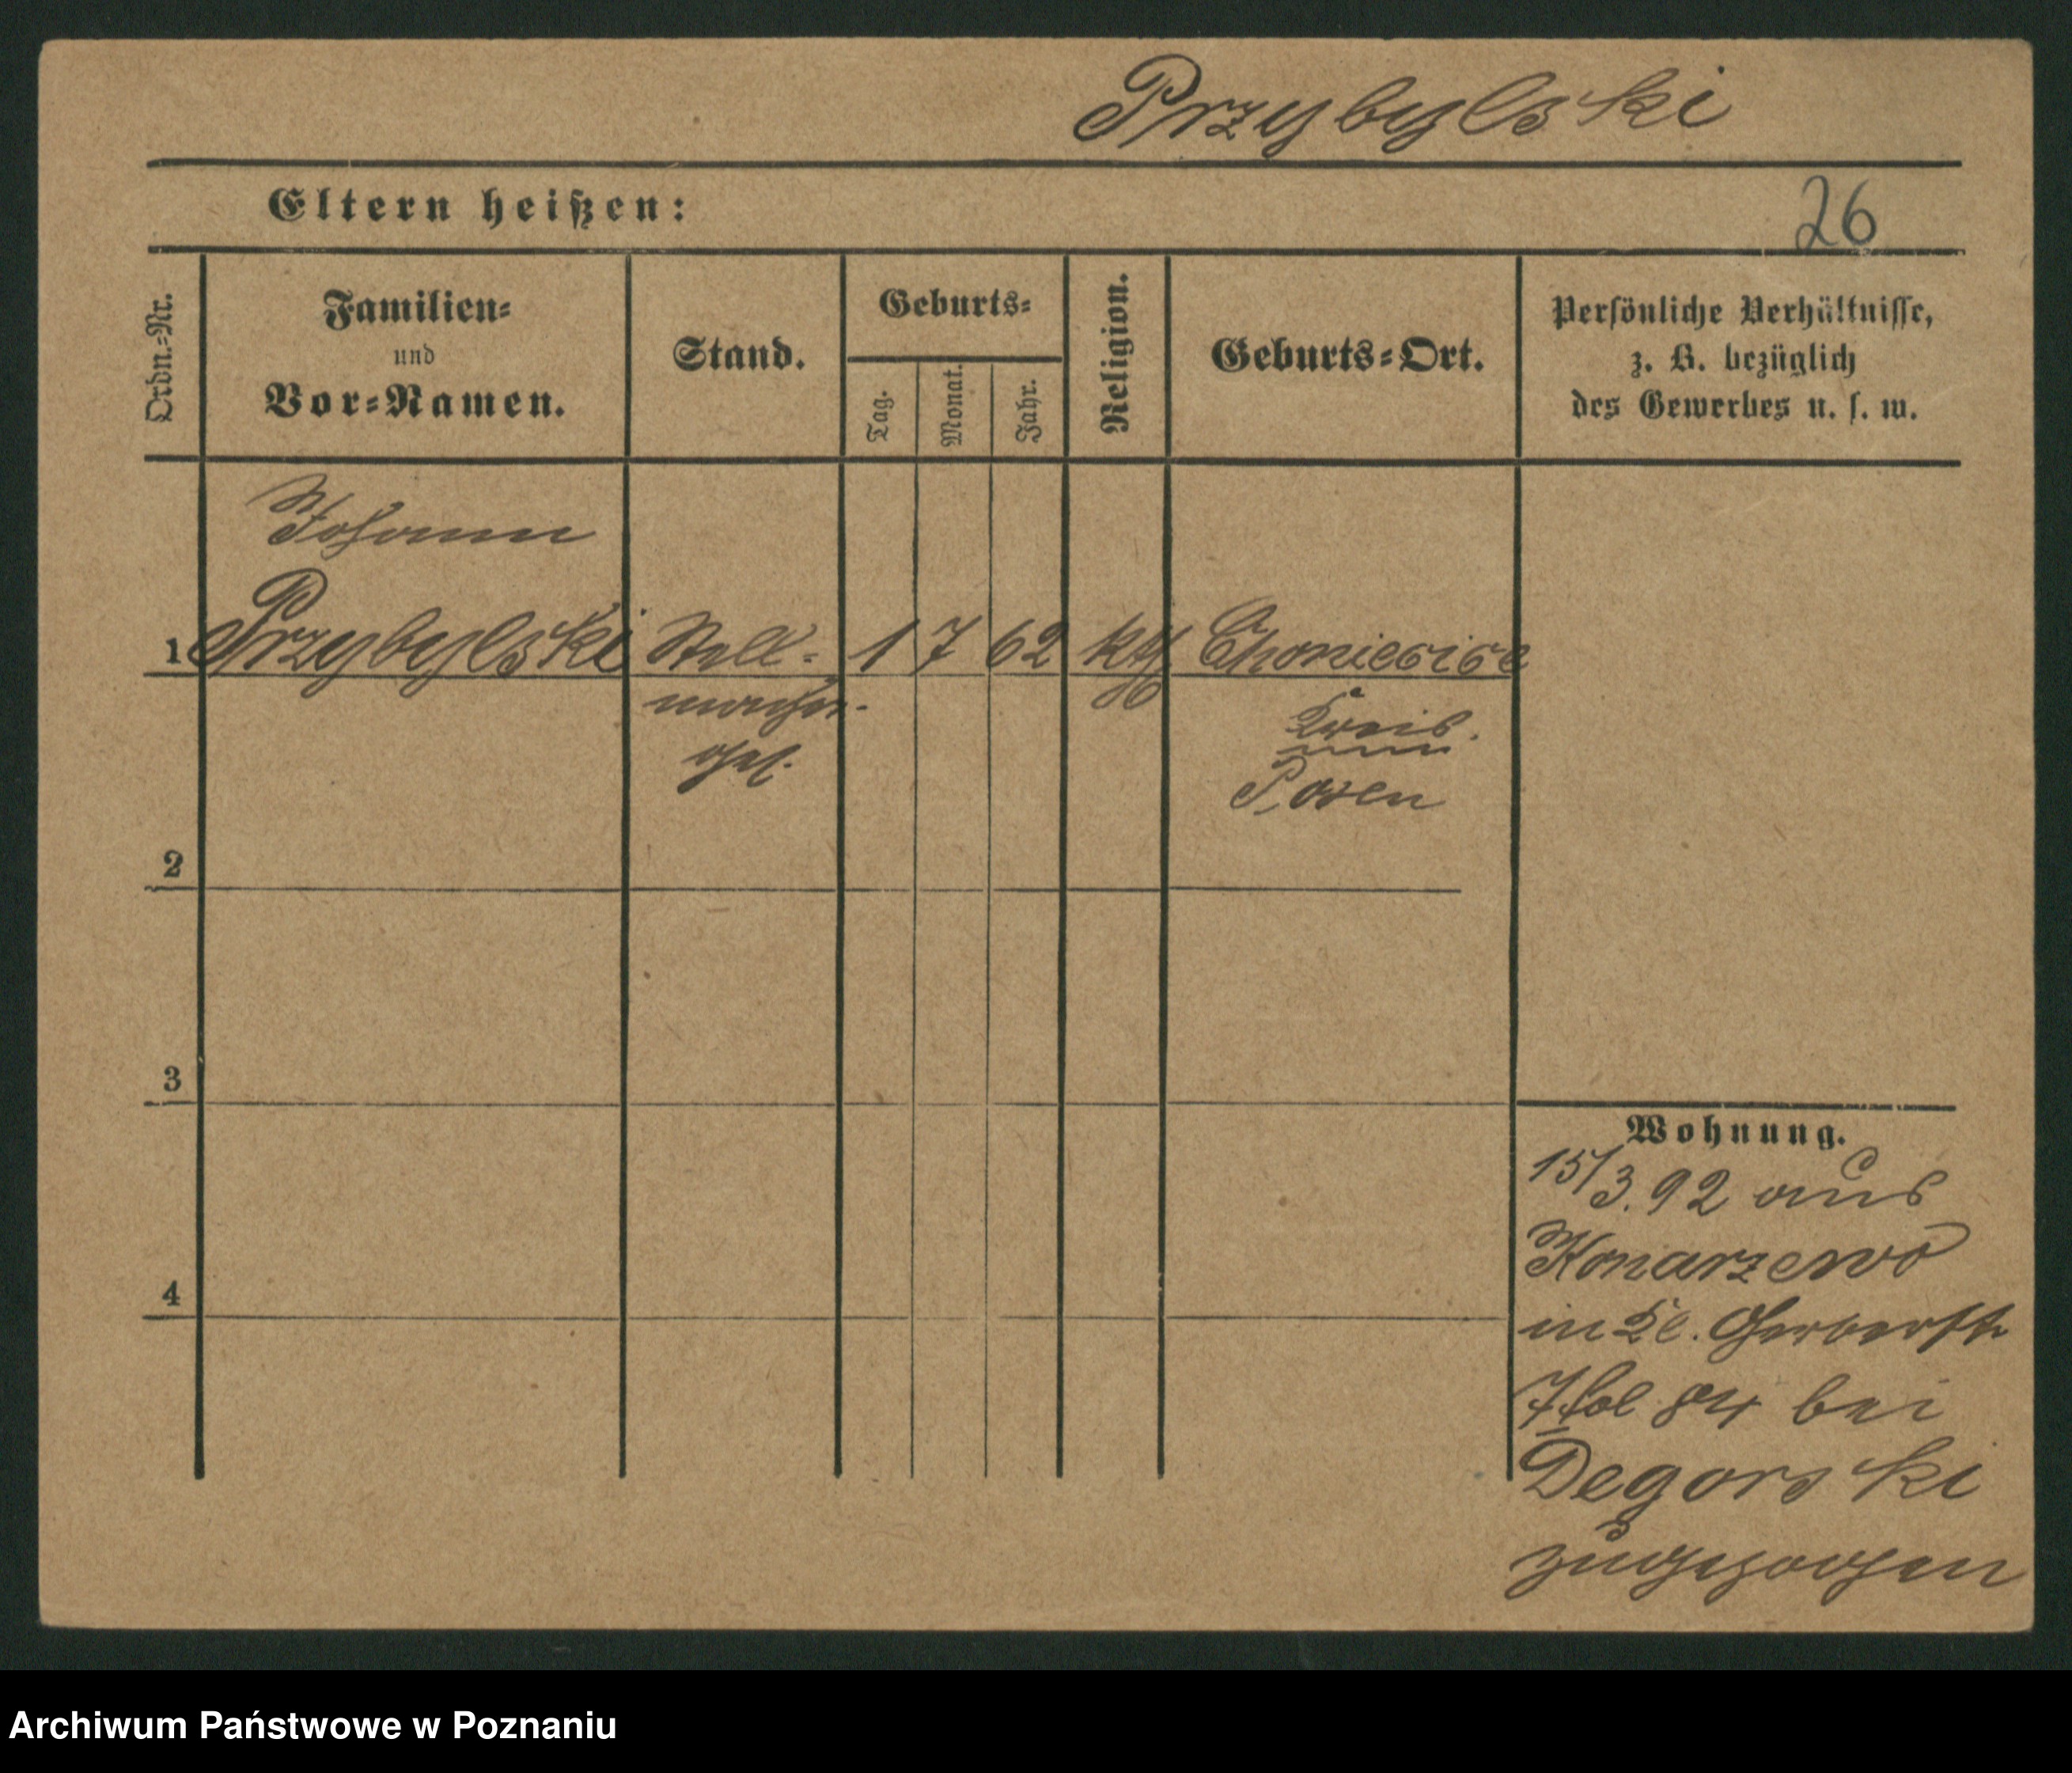 Przybylski
Eltern heißen:
26
Ordn.=Nr.
Familien=
und
Vor=Namen.
Stand.
Geburts=
Tag.
Monat.
Jahr.
Religion.
Geburts=Ort.
Persönliche Verhältnisse,
z. B. bezüglich
des Gewerbes u. s. w.
Johann
1 Przybylski Stell= 1 7 62 kth.
macher=
ges.
Kreis
Posen
2
3
4
Wohnung.
15/3.92 aus
Konarzewo
in Kl. Gerberstr
7 fol 84 bei
Degorski
zugezogen
Archiwum Państwowe w Poznaniu